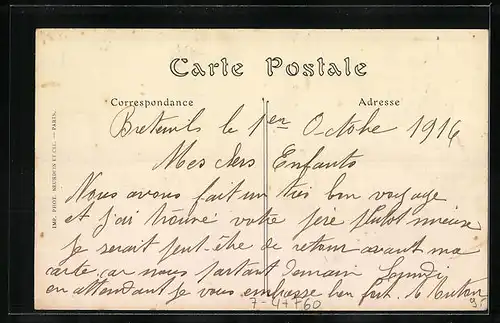 Carte Postale
Correspondance
Adresse
Breteuils le 1er Octobre 1916
Mes chers Enfants
Nous avons fait un très bon voyage
et j'ai trouvé votre père plutot mieux
je serait peut-être de retour avant ma
carte car nous partant demain Lundi
en attendant je vous embrasse bien fort.
7-47760
IMP. PHOT. NEURDEIN ET CIE. — PARIS.